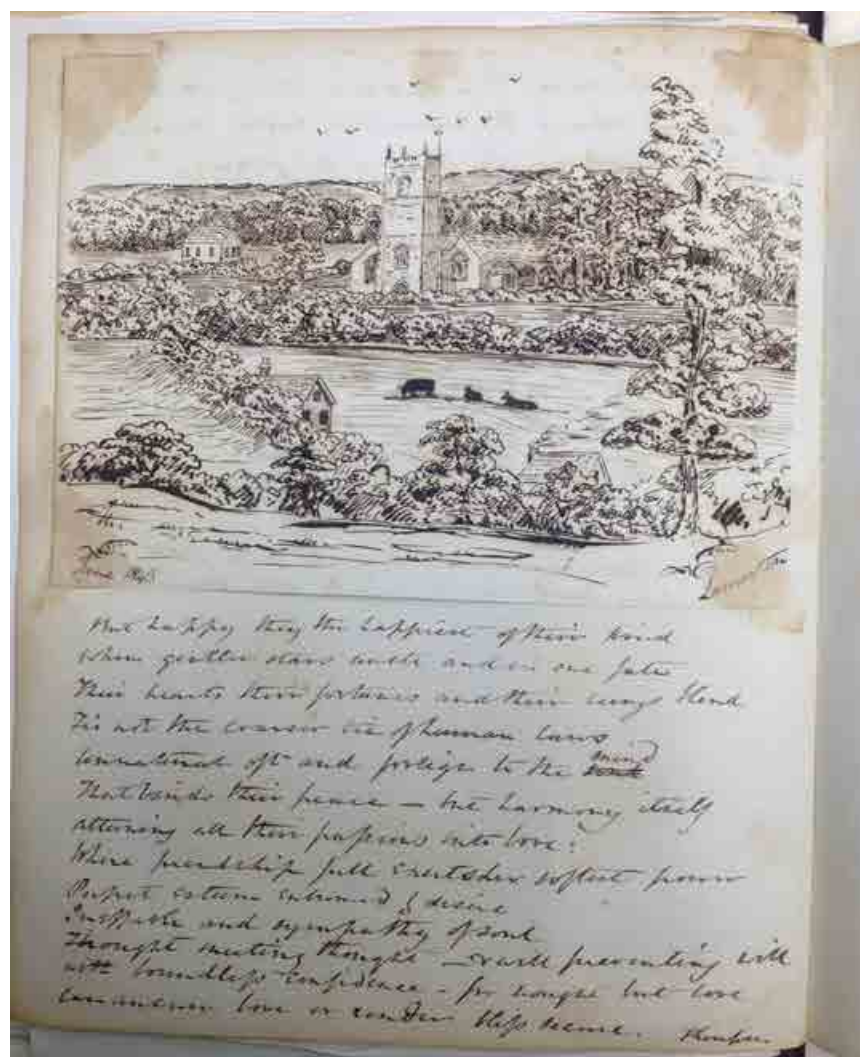 June
Lamerton
But happy they the happiest of their kind
Whom gentler stars unite and in one fate
Their hearts their fortunes and their beings blend
Tis not the coarser tie of human laws
Unnatural oft and foreign to the mind
That binds their peace – but harmony itself
attuning all their passions into love!
Where friendship full exerts her softest power
Perfect esteem enlivened by desire
Ineffable and sympathy of soul
Thought meeting thought – & will preventing will
with boundless confidence – for nought but love
can answer love or render bliss secure. Thompson